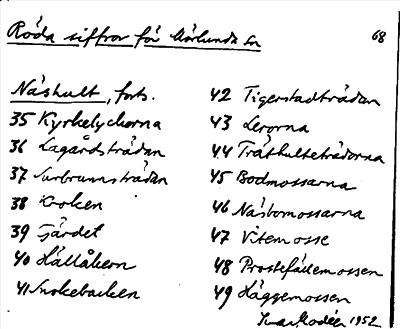 Röda siffror för Mörlunda sn
68
Näshult, forts.
35 Kyrkelyckorna
36 Lagårdsträdan
37 Surbrunnsträdan
38 Kroken
39 Gärdet
40 Hällåkern
41 Snokebacken
42 Tigerstadträdan
43 Lerorna
44 Träthulteträdorna
45 Bodmossarna
46 Näsbomossarna
47 Vitemosse
48 Prostefädemossen
49 Häggemossen
Ivar Modéer 1952